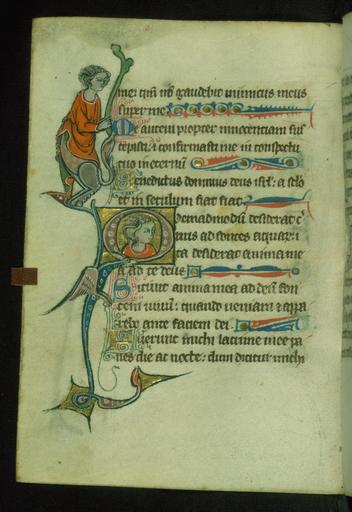 me: qm̄ nō gaudebit inimicus meus
super me
Me autem propter innocentiam sus
cepisti: ⁊ confirmasti me in conspectu
tuo in eternū
Benedictus dominus deus isrł: a sclo
et in seculum fiat fiat
Quemadmodū desiderat c̄
uus ad fontes aquar̄: i
ta desiderat anima me
a ad te deus
Sitiuit anima mea ad deū fon
tem uiuū: quando ueniam ⁊ appa
rebo ante faciem dei
Fuerunt michi lacrime mee pa
nes die ac nocte: dum dicitur michi